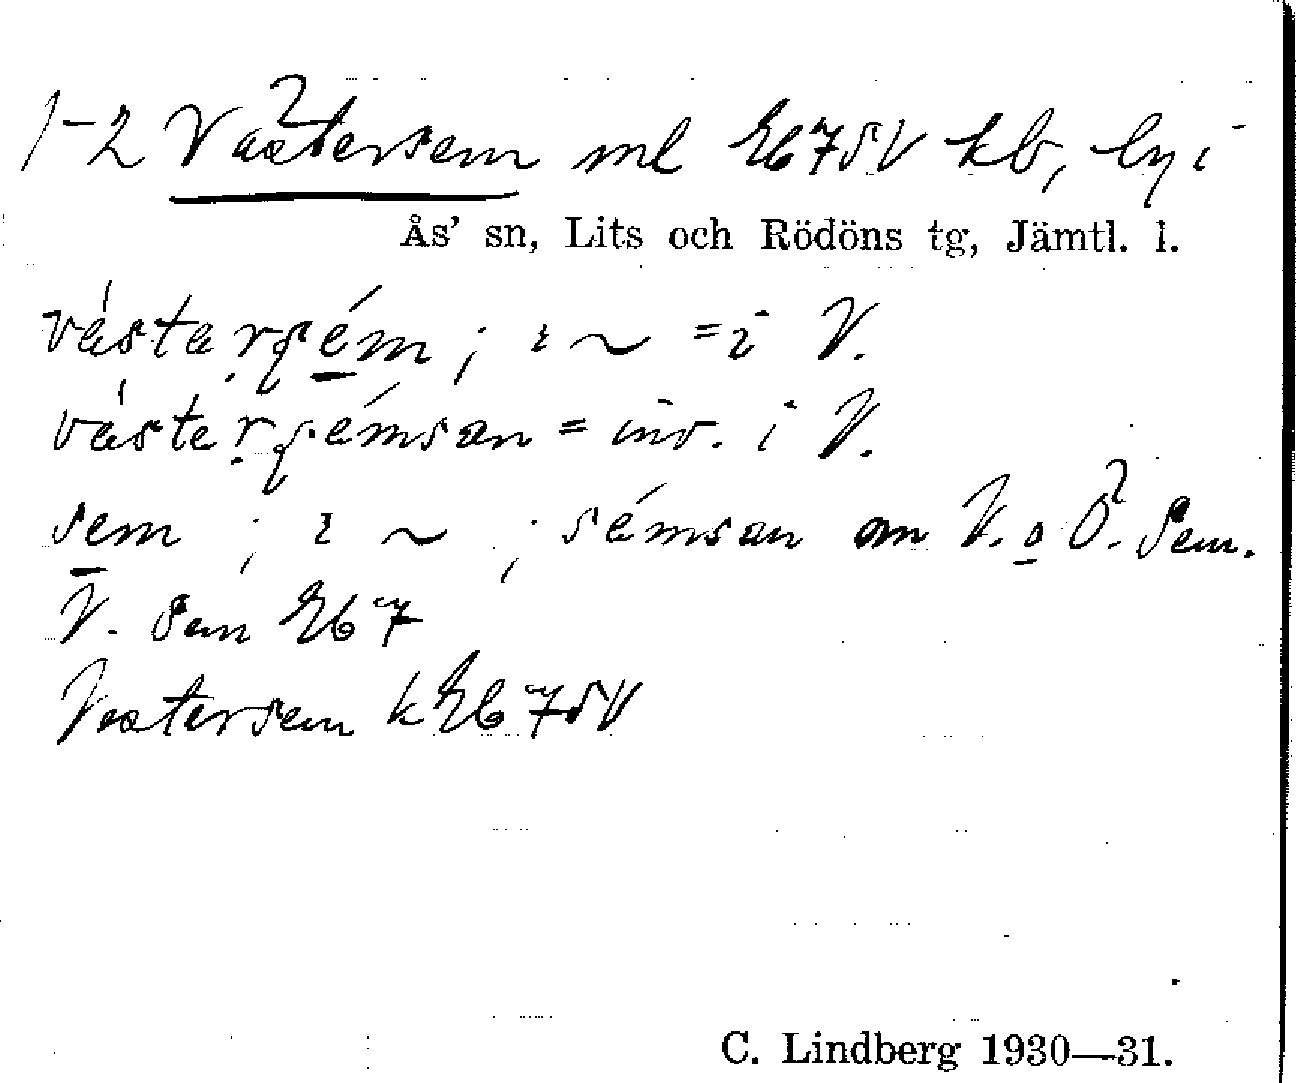 1-2 Västersem ml Eb75V kb, by i
Ås' sn, Lits och Rödöns tg, Jämtl. l.
västarsém ; ı ~ = i V.
västersémsan = inv. i V.
sem ; ı ~ ; sémsan om V. o Ö. Sem.
V. Sem Eb 7
Västersem k Eb 75V
C. Lindberg 1930—31.